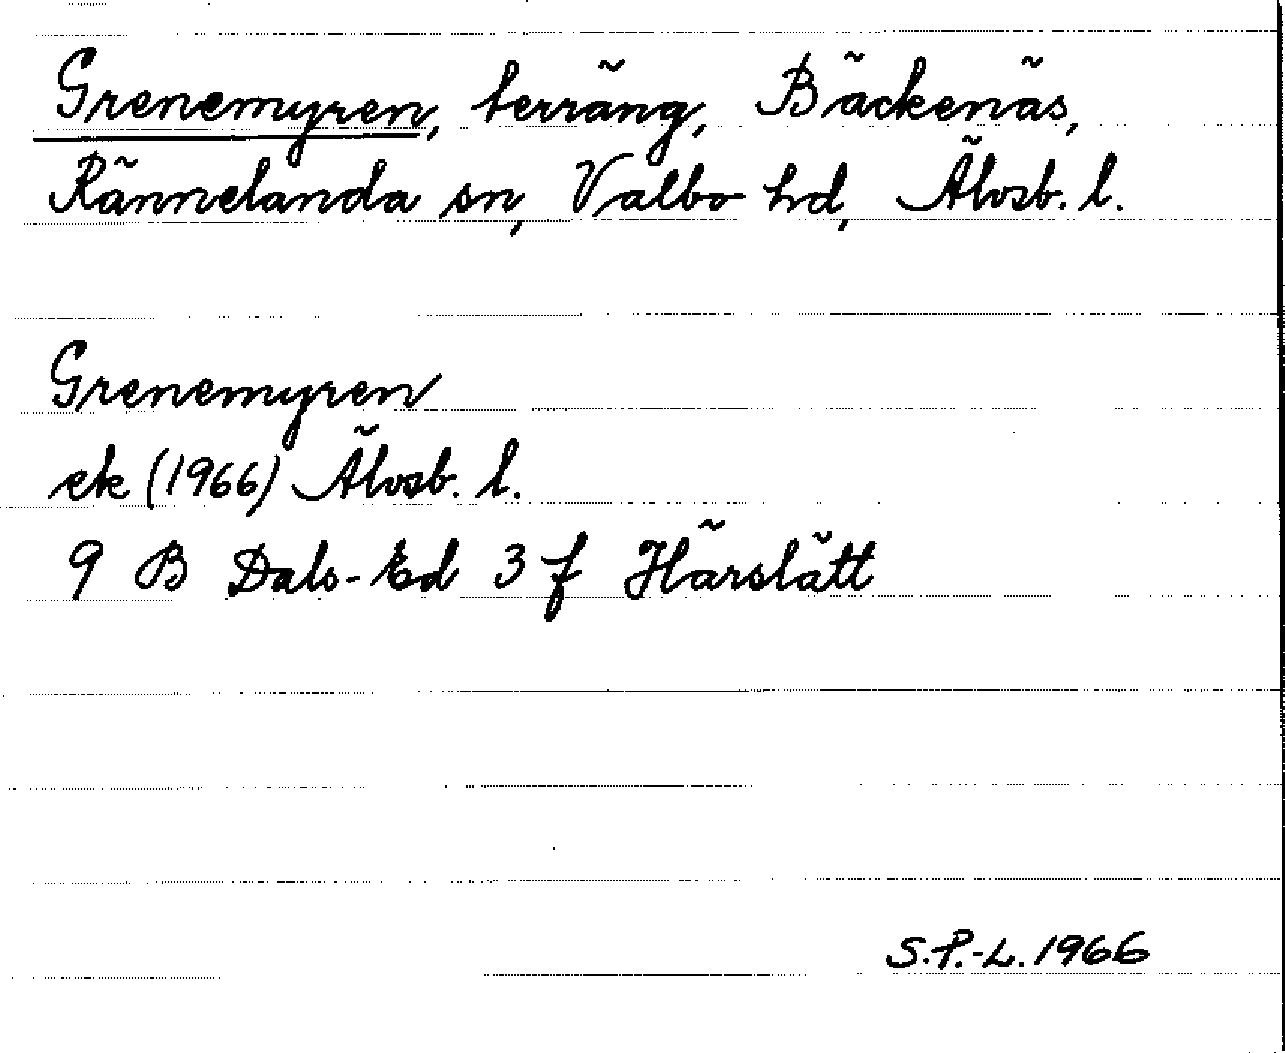 Grenemyren, terräng, Bäckenäs,
Rännelanda sn, Valbo hd, Älvsb. l.
Grenemyren
ek (1966) Älvsb. l.
9 B Dals-Ed 3 f Härslätt
S.P.-L. 1966